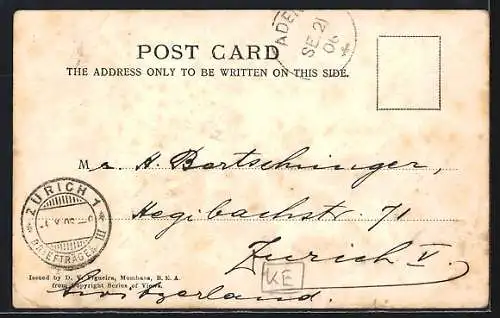 ADEN
SE 21
06
POST CARD
THE ADDRESS ONLY TO BE WRITTEN ON THIS SIDE.
Mr A Bertschinger,
Hegibachstr. 71
Zurich V.
Switzerland.
ZÜRICH 1
BRIEFTRÄGER III
Issued by D. V. Figueira, Mombasa, B.E.A.
from Copyright Series of Views.
KE